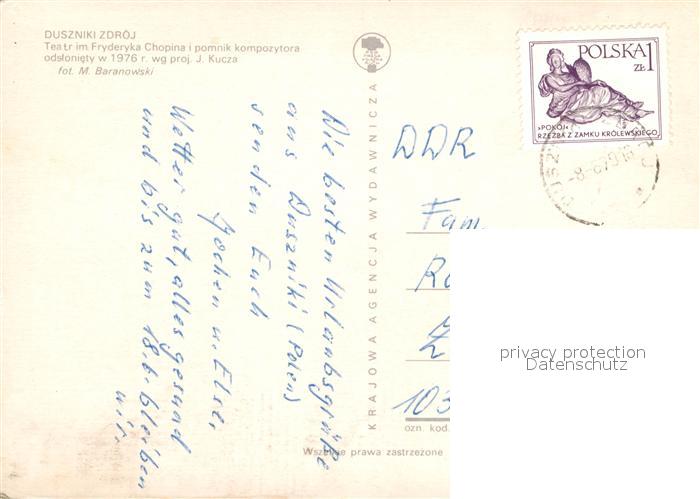 DUSZNIKI ZDRÓJ
Teatr im Fryderyka Chopina i pomnik kompozytora
odsłonięty w 1976 r. wg proj. J. Kucza
fot. M. Baranowski
KRAJOWA AGENCJA WYDAWNICZA
POLSKA 1
ZŁ
»POKÓJ«
RZEŹBA Z ZAMKU KRÓLEWSKIEGO
Die besten Urlaubsgrüße
aus Duszniki (Polen)
senden Euch
Jochen u. Else.
Wetter gut, alles gesund
und bis zum 18.6. bleiben
wir.
DDR
Fam.
103
ozn. kod.
Wszelkie prawa zastrzeżone
privacy protection
Datenschutz